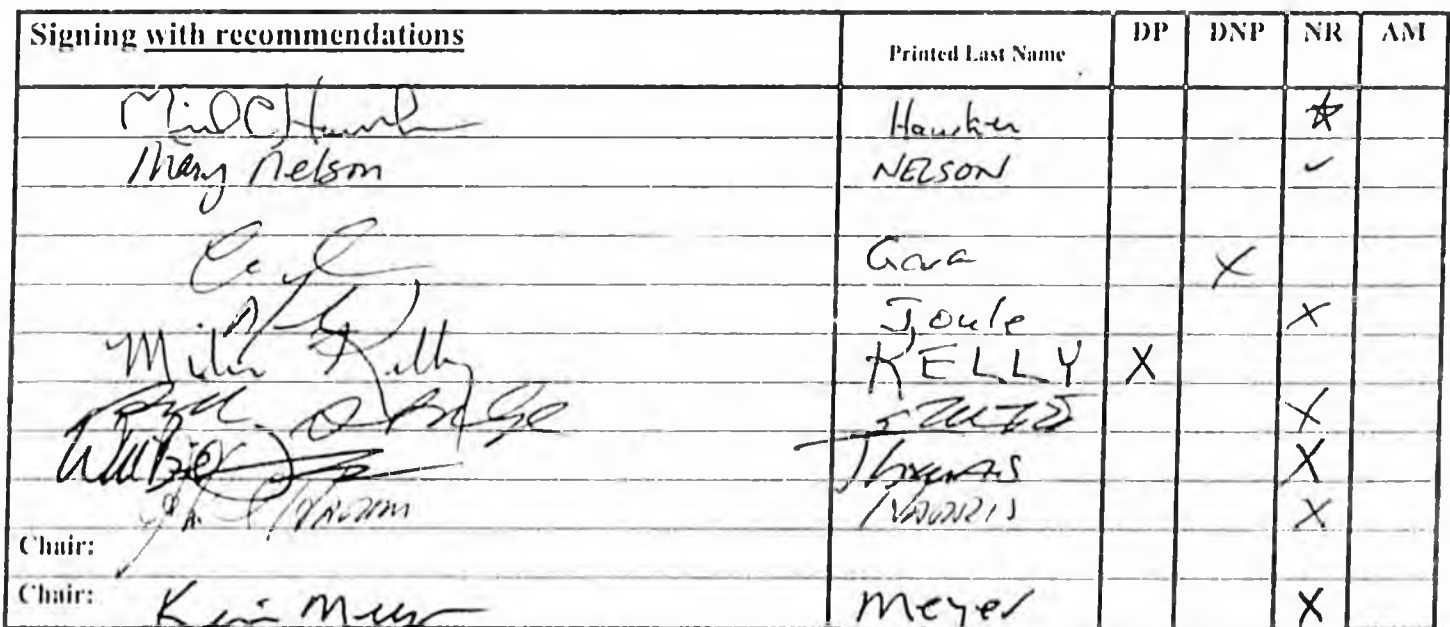 Signing with recommendations Printed Last Name DP DNP NR AM
Hawker ☆
Mary Nelson NELSON ✓
Gara X
Joule X
Mike Kelly KELLY X
X
Thomas X
Morris X
Chair:
Chair: Kevin Meyer Meyer X